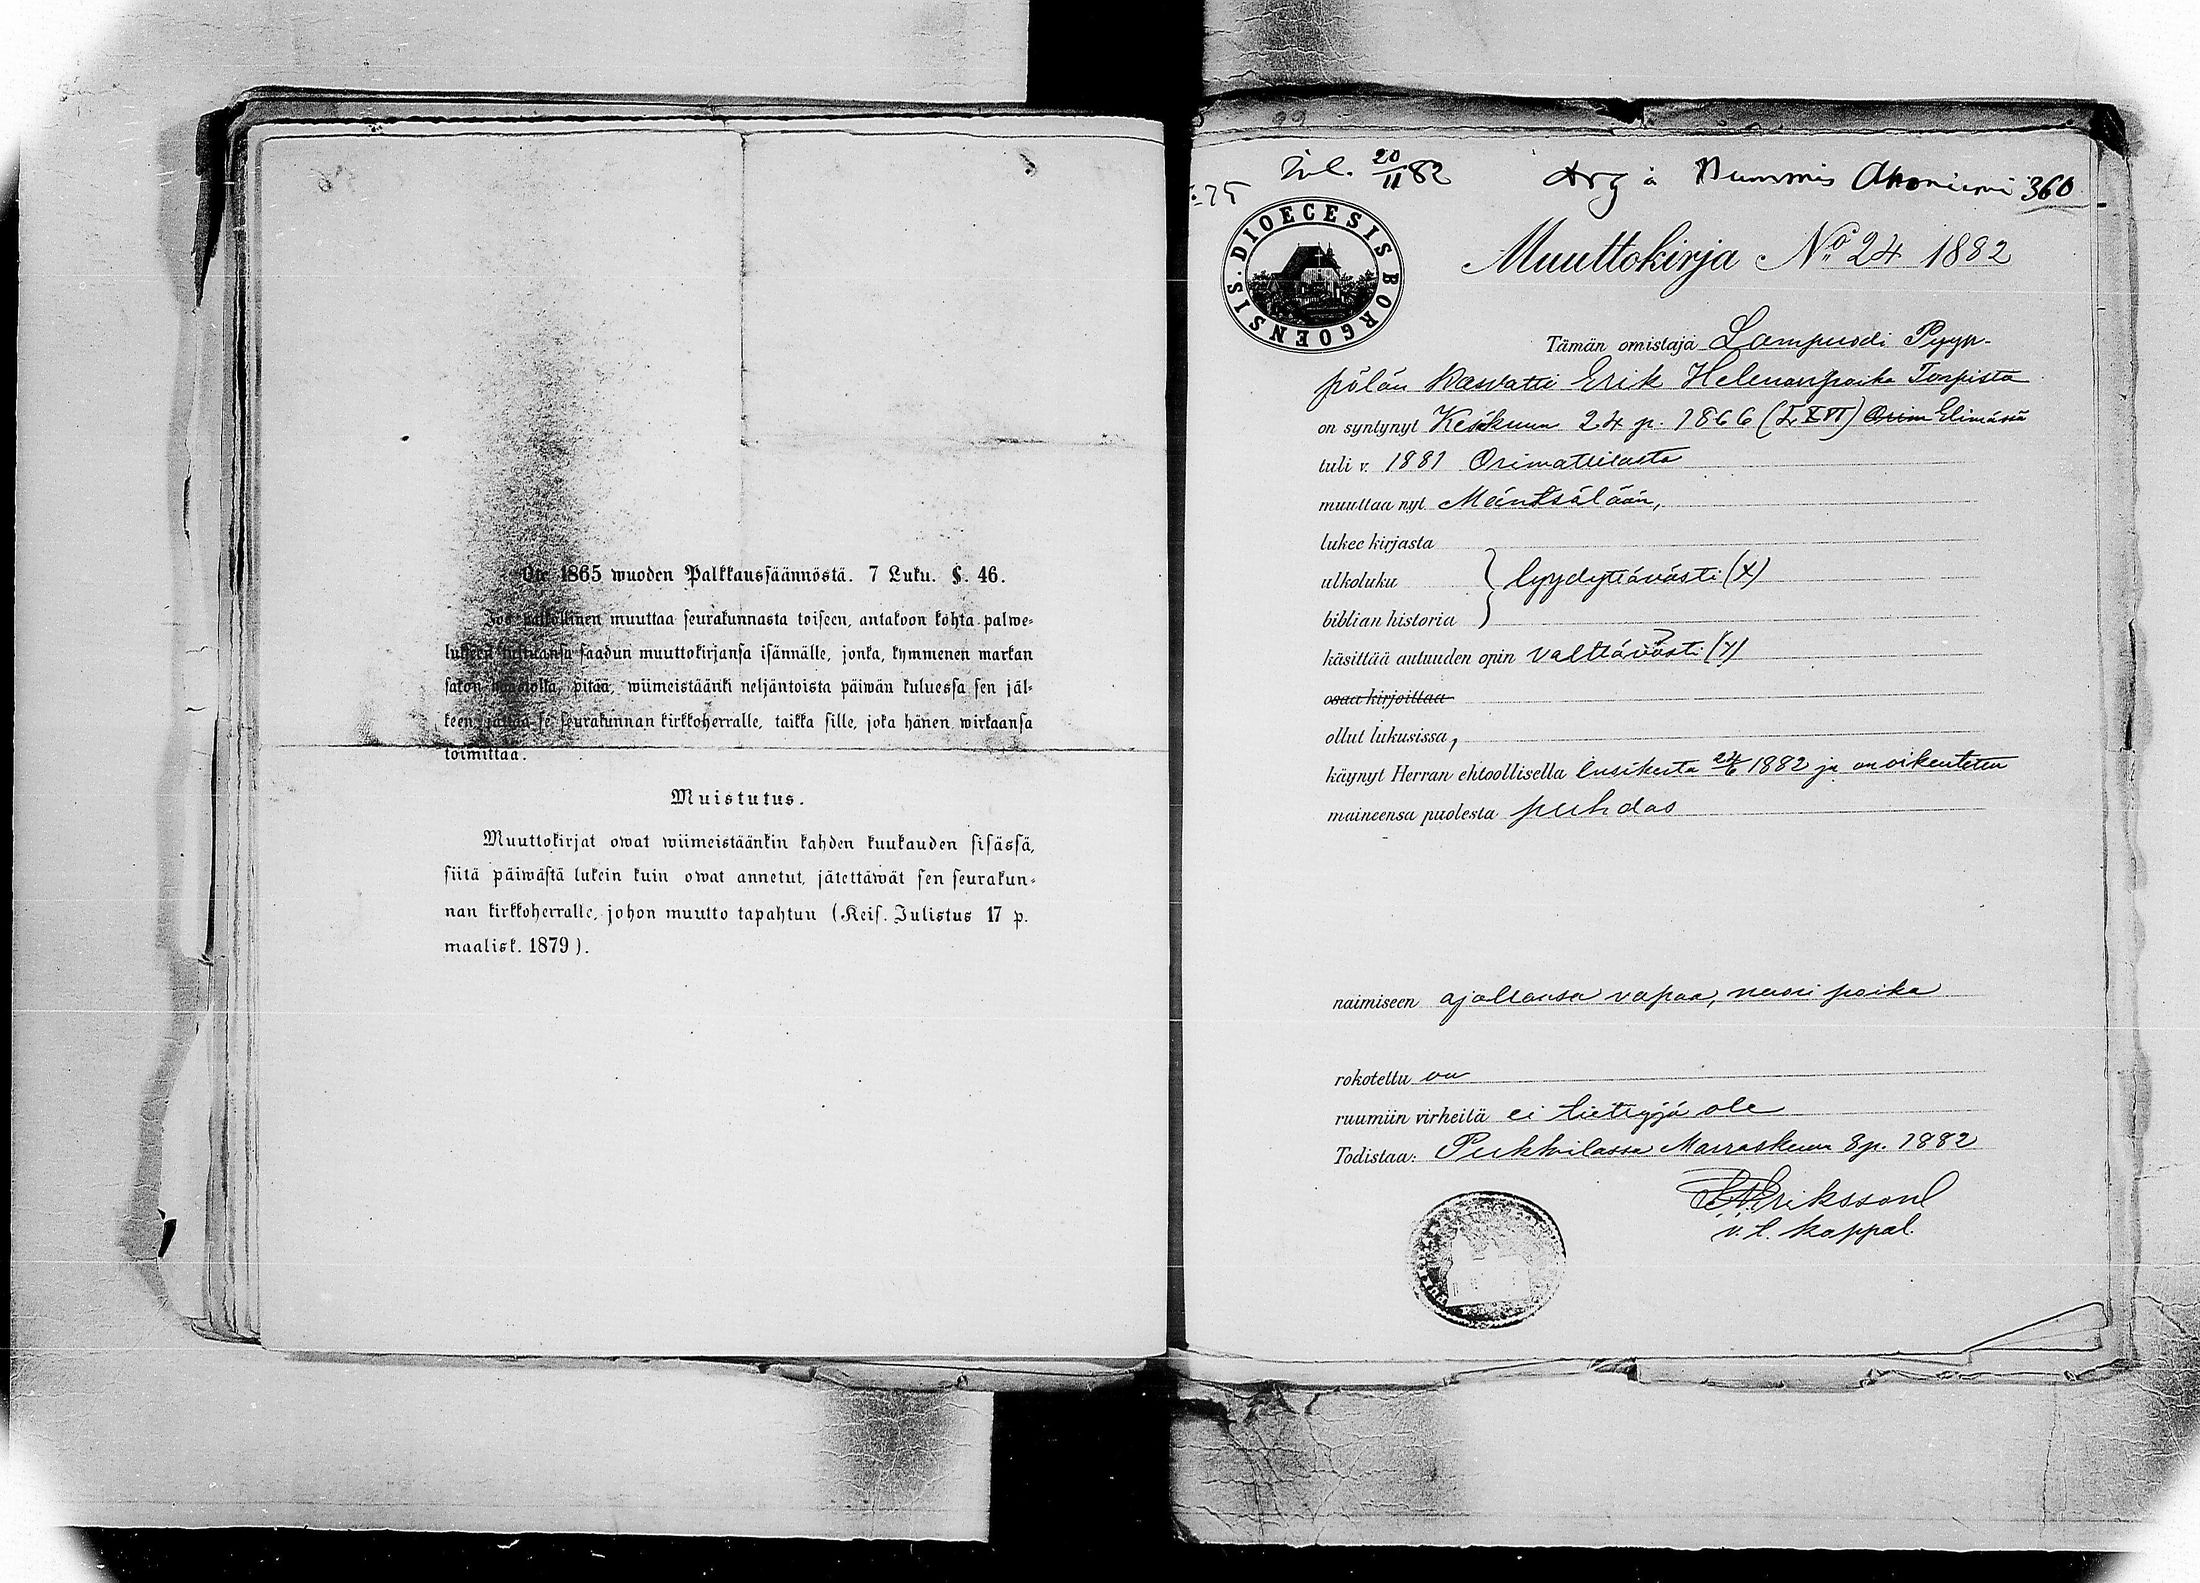 Ote 1865 wuoden Palkkaussäännöstä. 7 Luku. §. 46.
Jos palkollinen muuttaa seurakunnasta toiseen, antakoon kohta palwe-
lukseen tultuansa saadun muuttokirjansa isännälle, jonka, kymmenen markan
sakon haastolla, pitää, wiimeistäänki neljäntoista päiwän kuluessa sen jäl-
keen jättää se seurakunnan kirkkoherralle, taikka sille, joka hänen wirkaansa
toimittaa.
Muistutus.
Muuttokirjat owat wiimeistäänkin kahden kuukauden sisässä,
siitä päiwästä lukein kuin owat annetut, jätettäwät sen seurakun-
nan kirkkoherralle, johon muutto tapahtuu (Keis. Julistus 17 p.
maalisk. 1879).
20/11 82 à Nummis 360
DIOECESIS BORGOENSIS
Muuttokirja No 24 1882
Tämän omistaja Lampuodi Pyyp-
pölän kasvatti Erik Helenanpoika Torpista
on syntynyt Kesäkuun 24 p. 1866 (LXVI) Orim Elimässä
tuli v. 1881 Orimattilasta
muuttaa nyt Mäntsälään,
lukee kirjasta
ulkoluku } lyydyttävästi (x)
biblian historia
käsittää autuuden opin valttävästi (y)
osaa kirjoittaa
ollut lukusissa,
käynyt Herran ehtoollisella ensikerta 24/6 1882 ja on oikeutettu
maineensa puolesta puhdas
naimiseen ajallansa vapaa, nuori poika
rokotettu on
ruumiin virheitä ei tiettyjä ole
Todistaa: Pukkilassa Marraskuun 8 p. 1882
Eriksson
v. t. kappal.